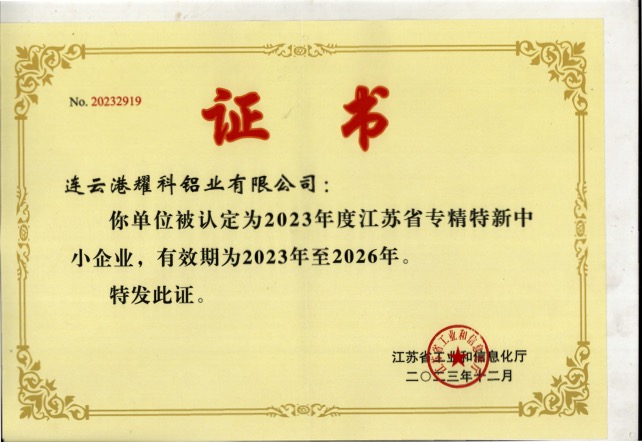 No. 20232919
证 书
连云港耀科铝业有限公司：
你单位被认定为2023年度江苏省专精特新中
小企业，有效期为2023年至2026年。
特发此证。
江苏省工业和信息化厅
江苏省工业和信息化厅
二〇二三年十二月